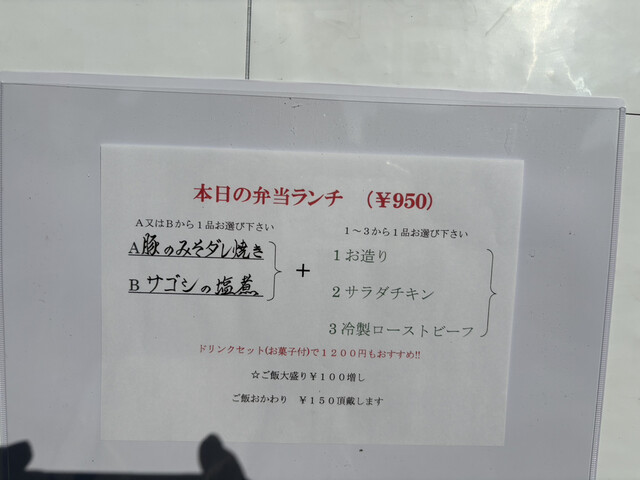 本日の弁当ランチ (￥950)
A又はBから1品お選び下さい
1～3から1品お選び下さい
A豚のみそダレ焼き
B サゴシの塩煮
+
1お造り
2サラダチキン
3冷製ローストビーフ
ドリンクセット(お菓子付)で1200円もおすすめ!!
☆ご飯大盛り￥100増し
ご飯おかわり ￥150頂戴します